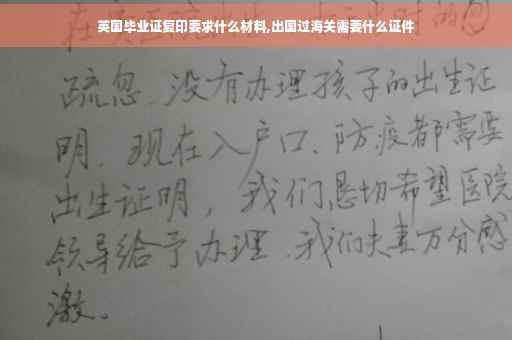 英国毕业证复印要求什么材料,出国过海关需要什么证件
疏忽、没有办理孩子的出生证
明、现在入户口、防疫都需要
出生证明，我们恳切希望医院
领导给予办理、我们夫妻万分感
激。